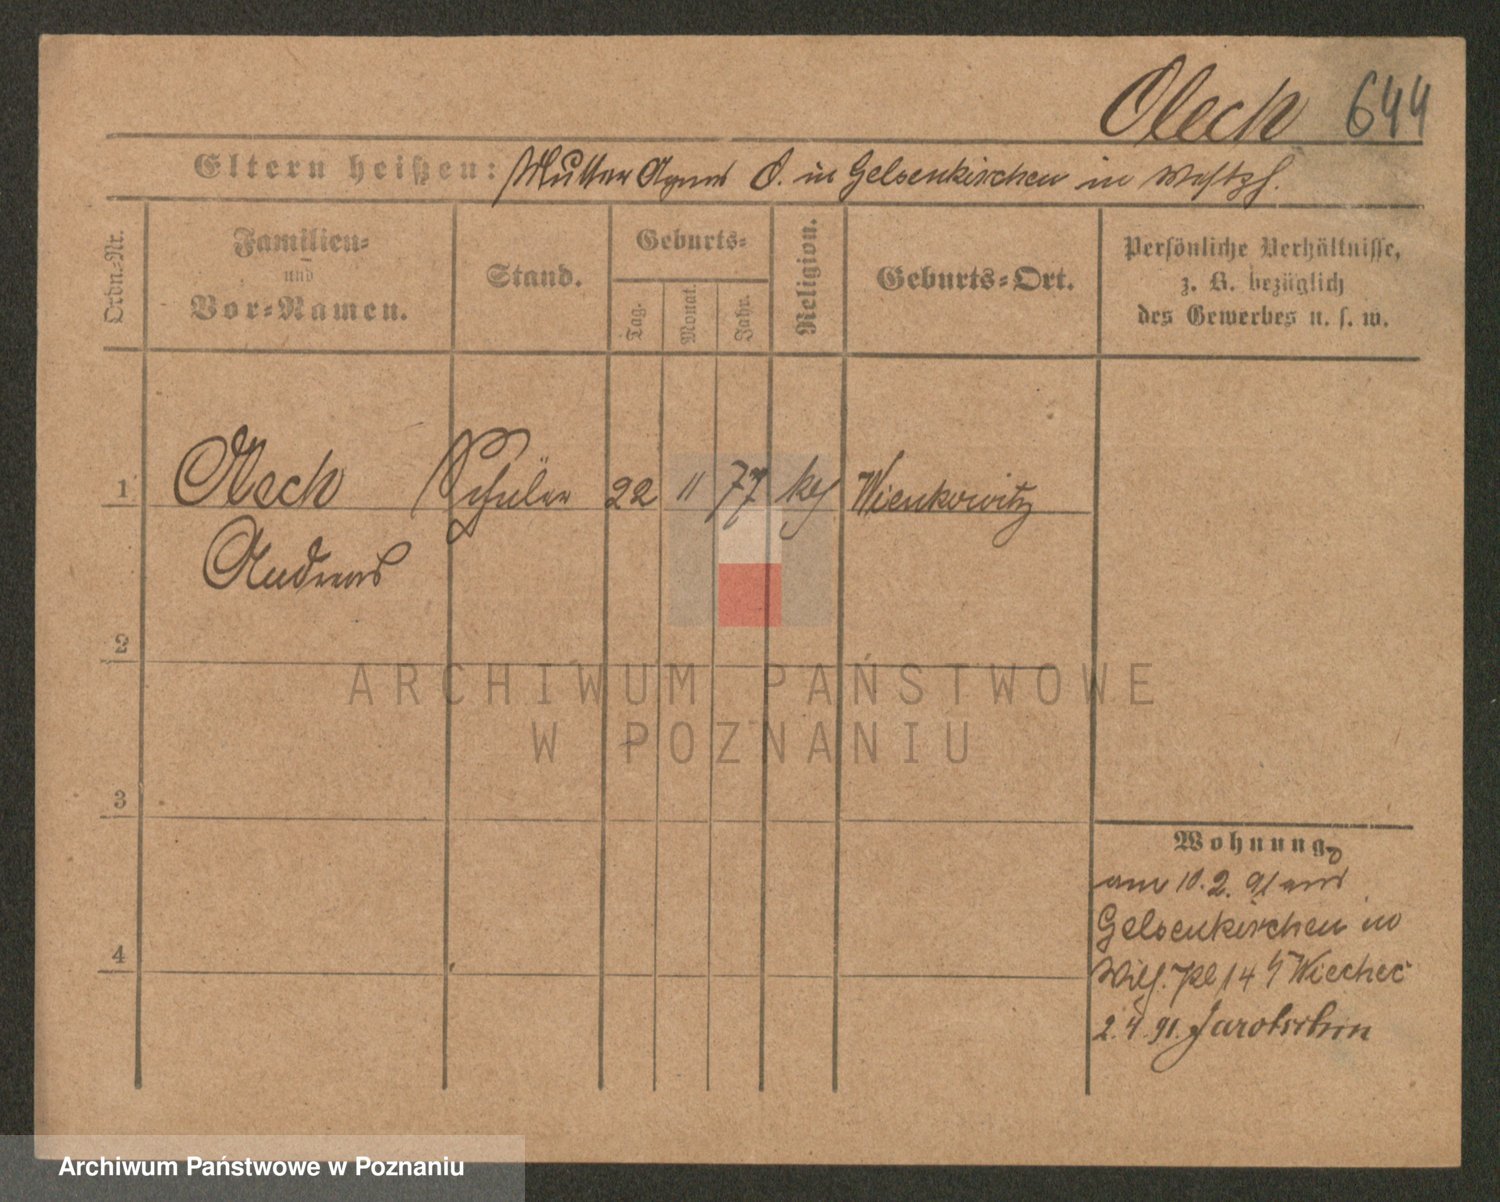 Oleck 644
Eltern heißen: Mutter Agnes O. in Gelsenkirchen in Westpf.
Ordn.-Nr.
Familien-
und
Vor-Namen.
Stand.
Geburts-
Tag.
Monat.
Jahr.
Religion.
Geburts-Ort.
Persönliche Verhältnisse,
z. B. bezüglich
des Gewerbes u. s. w.
1 Oleck Schüler 22 11 77 kth Wienkowitz
Andreas
2
3
4
Wohnung
am 10. 2. 91 aus
Gelsenkirchen in
Wilh. Pl 14 Wiecheć
2. 4. 91. Jarotschin
ARCHIWUM PAŃSTWOWE
W POZNANIU
Archiwum Państwowe w Poznaniu